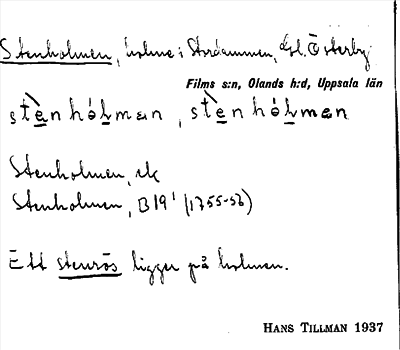 Stenholmen, holme i Stordammen, Lol. Österby
Films s:n, Olands h:d, Uppsala län
stènhólman, stènhólmen
Stenholmen, ek
Stenholmen, B 19¹ (1755-56)
Ett stenrös ligger på holmen.
HANS TILLMAN 1937